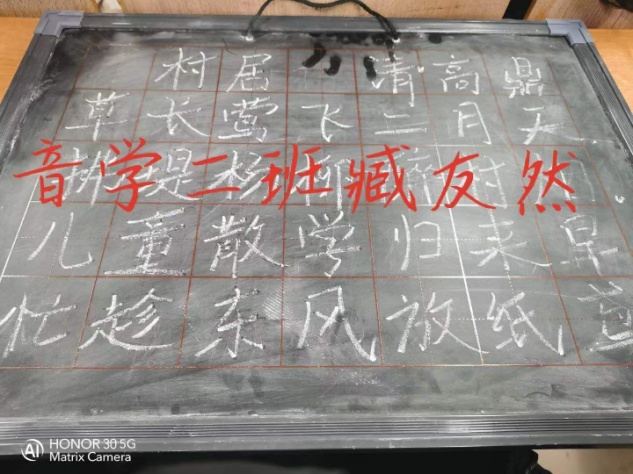 村居 清 高鼎
草长莺飞二月天
音学二班臧友然
儿童散学归来早
忙趁东风放纸
HONOR 30 5G
Matrix Camera